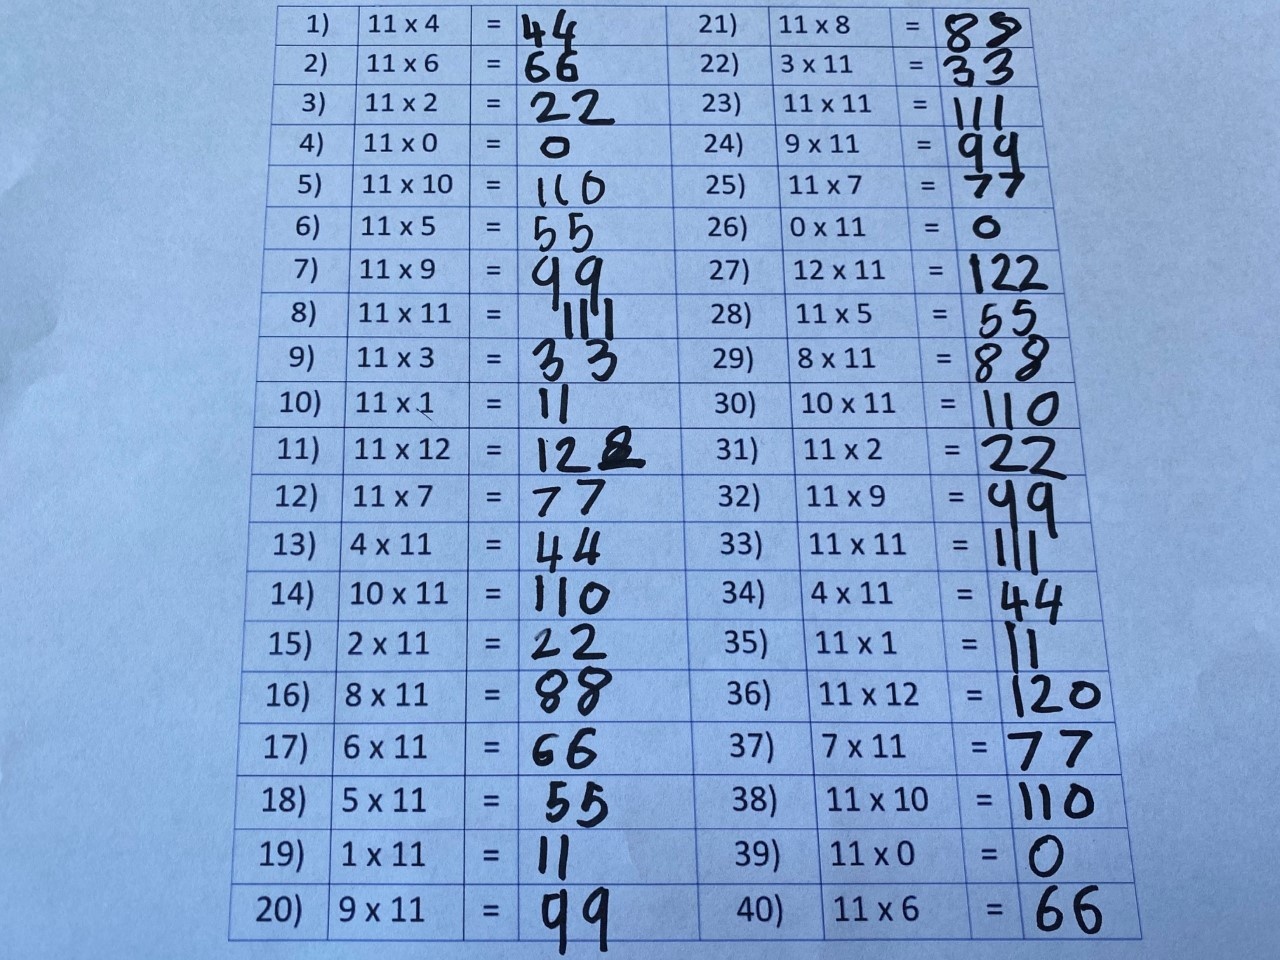 1) 11 x 4 = 44 21) 11 x 8 = 88
2) 11 x 6 = 66 22) 3 x 11 = 33
3) 11 x 2 = 22 23) 11 x 11 = 111
4) 11 x 0 = 0 24) 9 x 11 = 99
5) 11 x 10 = 110 25) 11 x 7 = 77
6) 11 x 5 = 55 26) 0 x 11 = 0
7) 11 x 9 = 99 27) 12 x 11 = 122
8) 11 x 11 = 111 28) 11 x 5 = 55
9) 11 x 3 = 33 29) 8 x 11 = 88
10) 11 x 1 = 11 30) 10 x 11 = 110
11) 11 x 12 = 122 31) 11 x 2 = 22
12) 11 x 7 = 77 32) 11 x 9 = 99
13) 4 x 11 = 44 33) 11 x 11 = 111
14) 10 x 11 = 110 34) 4 x 11 = 44
15) 2 x 11 = 22 35) 11 x 1 = 11
16) 8 x 11 = 88 36) 11 x 12 = 120
17) 6 x 11 = 66 37) 7 x 11 = 77
18) 5 x 11 = 55 38) 11 x 10 = 110
19) 1 x 11 = 11 39) 11 x 0 = 0
20) 9 x 11 = 99 40) 11 x 6 = 66